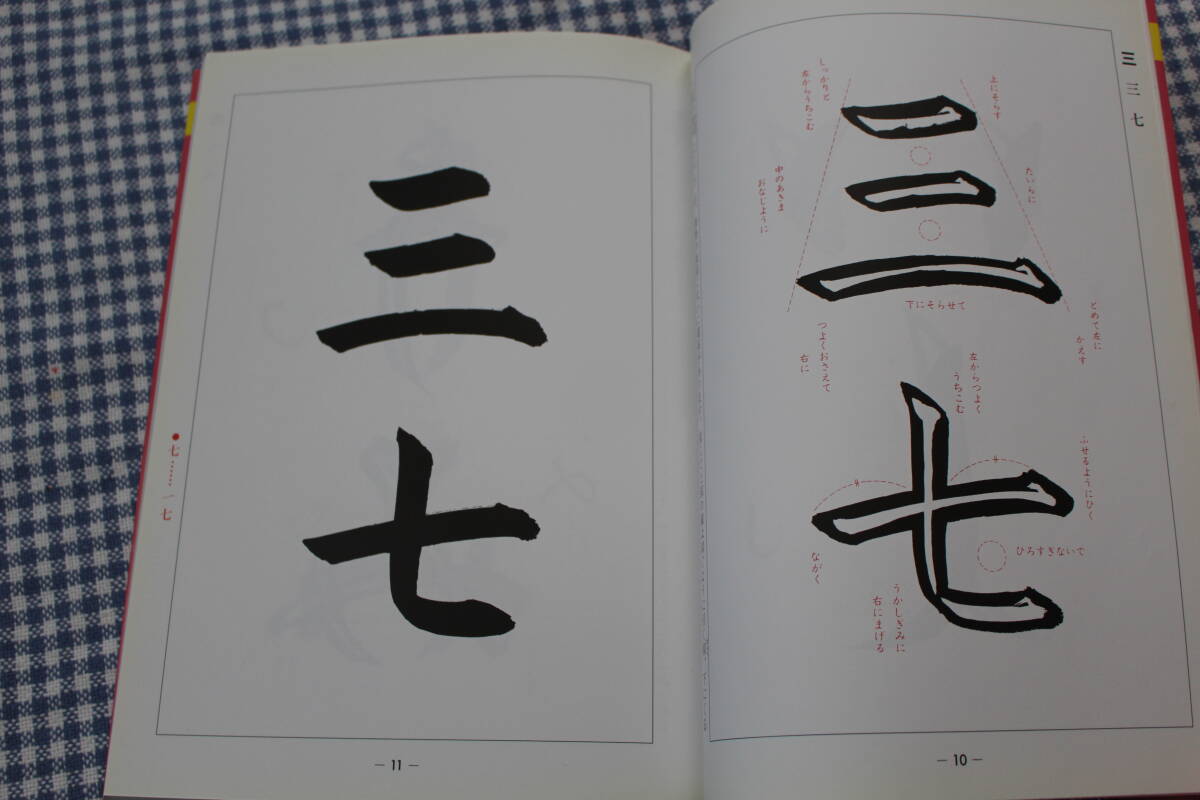 三 三 七
上にそらす
しっかりと
左からうちこむ
たいらに
中のあきま
おなじように
三
下にそらせて
とめて左に
かえす
つよくおさえて
右に
左からつよく
うちこむ
ふせるようにひく
七
ながく
ひろすぎないで
うかしぎみに
右にまげる
— 10 —
三
七
●七……一七
— 11 —